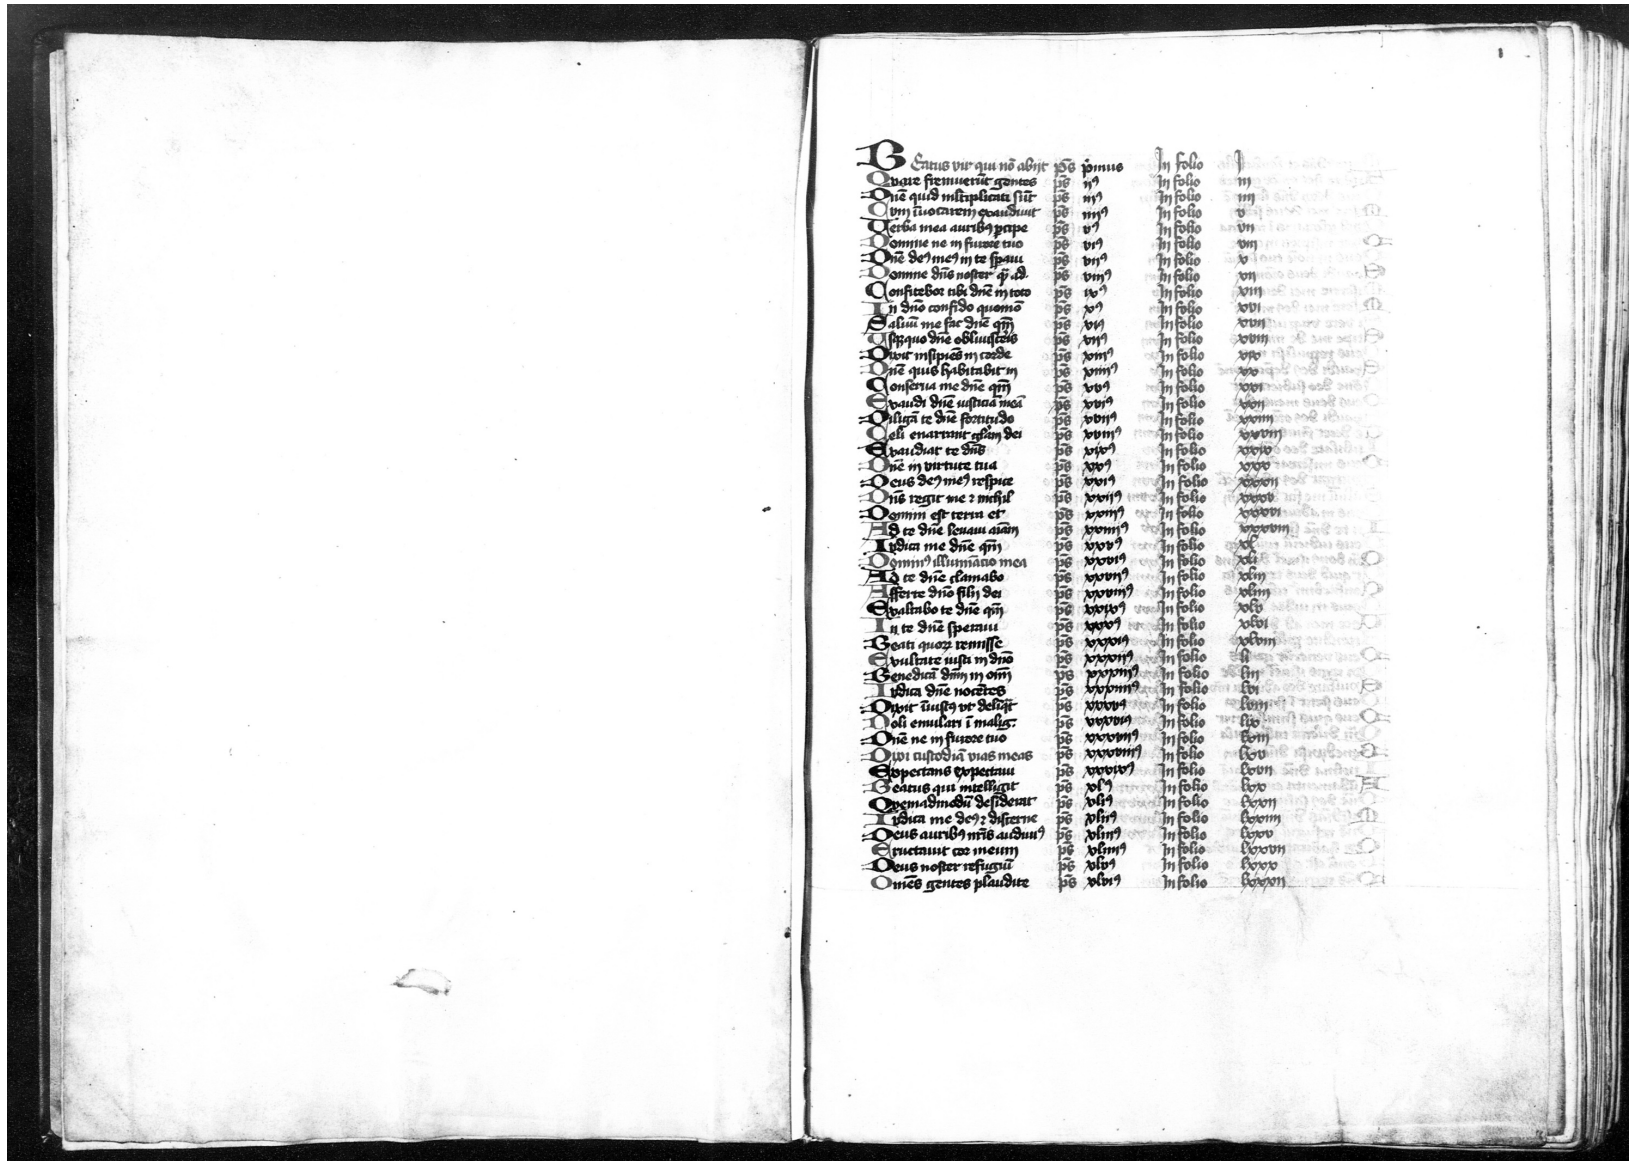 1
Beatus vir qui nō abijt p̄s p̄mus In folio j
Quare fremuerūt gentes p̄s ijꝰ In folio iij
Dn̄e quid mltiplicati sūt p̄s iijꝰ In folio iiij
Cum īuocarem exaudiuit p̄s iiijꝰ In folio v
Verba mea auribꝰ ꝑcipe p̄s vꝰ In folio vij
Domine ne in furore tuo p̄s viꝰ In folio viij
Dn̄e deꝰ meꝰ in te sꝑaui p̄s vijꝰ In folio x
Domine dn̄s noster q̄ ad p̄s viijꝰ In folio xij
Confitebor tibi dn̄e in toto p̄s ixꝰ In folio xiij
In dn̄o confido quomō p̄s xꝰ In folio xvi
Saluū me fac dn̄e qm̄ p̄s xiꝰ In folio xvij
Vsqꝫquo dn̄e obliuisceris p̄s xijꝰ In folio xviij
Dixit insipiēs in corde p̄s xiijꝰ In folio xix
Dn̄e quis habitabit in p̄s xiiijꝰ In folio xx
Conserua me dn̄e qm̄ p̄s xvꝰ In folio xxi
Exaudi dn̄e iusticiā meā p̄s xviꝰ In folio xxij
Diligā te dn̄e fortitudo p̄s xvijꝰ In folio xxiiij
Celi enarrant gl̄am dei p̄s xviijꝰ In folio xxviij
Exaudiat te dn̄s p̄s xixꝰ In folio xxix
Dn̄e in virtute tua p̄s xxꝰ In folio xxx
Deus deꝰ meꝰ respice p̄s xxiꝰ In folio xxxij
Dn̄s regit me ⁊ nichil p̄s xxijꝰ In folio xxxv
Domini est terra et p̄s xxiijꝰ In folio xxxvi
Ad te dn̄e leuaui aīam p̄s xxiiijꝰ In folio xxxviij
Iudica me dn̄e qm̄ p̄s xxvꝰ In folio xl
Dominꝰ illuminacio mea p̄s xxviꝰ In folio xli
Ad te dn̄e clamabo p̄s xxvijꝰ In folio xliij
Afferte dn̄o filij dei p̄s xxviijꝰ In folio xliiij
Exaltabo te dn̄e qm̄ p̄s xxixꝰ In folio xlv
In te dn̄e speraui p̄s xxxꝰ In folio xlvi
Beati quoꝝ remisse p̄s xxxiꝰ In folio xlviij
Exultate iusti in dn̄o p̄s xxxijꝰ In folio li
Benedicā dnm̄ in om̄i p̄s xxxiijꝰ In folio liij
Iudica dn̄e nocētes p̄s xxxiiijꝰ In folio lvi
Dixit īiustꝰ vt delīqt p̄s xxxvꝰ In folio lviij
Noli emulari ī malig: p̄s xxxviꝰ In folio lix
Dn̄e ne in furore tuo p̄s xxxvijꝰ In folio lxiij
Dixi custodiā vias meas p̄s xxxviijꝰ In folio lxv
Expectans expectaui p̄s xxxixꝰ In folio lxvij
Beatus qui intelligit p̄s xlꝰ In folio lxx
Quemadmodū desiderat p̄s xliꝰ In folio lxxij
Iudica me deꝰ ⁊ discerne p̄s xlijꝰ In folio lxxiiij
Deus auribꝰ nr̄is audiuiꝰ p̄s xliijꝰ In folio lxxv
Eructauit cor meum p̄s xliiijꝰ In folio lxxvij
Deus noster refugiū p̄s xlvꝰ In folio lxxx
Omēs gentes plaudite p̄s xlviꝰ In folio lxxxij